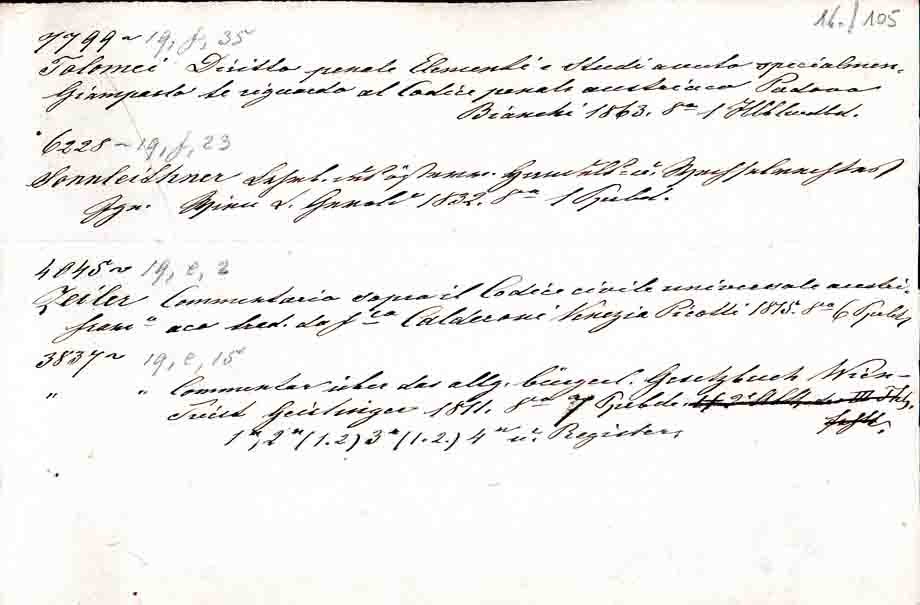 16./105
7799~ 19, f, 35
Tolomei Diritto penale Elementi e Studi avuto specialmen-
Giampaolo te riguardo al Codice penale austriaco Padova
Bianchi 1863. 8º 1
6228~ 19, f, 23
Sonnleithner Lehrb. des österr. Handels- u. Wechselrechtes
Ign. Wien 1832. 8º 1 Ppbd.
4045~ 19, e, 2
Zeiler Commentario sopra il Codice civile universale austri-
franc.º aco trad. da Calderoni Venezia Picotti 1815. 8º 6 Ppbde
3837~ 19, e, 15
" " Commentar über das allg. bürgerl. Gesetzbuch Wien-
Triest Geistinger 1811. 8º 7 Ppbde.
fehlt.
1r, 2r (1.2) 3r (1.2.) 4r u. Register